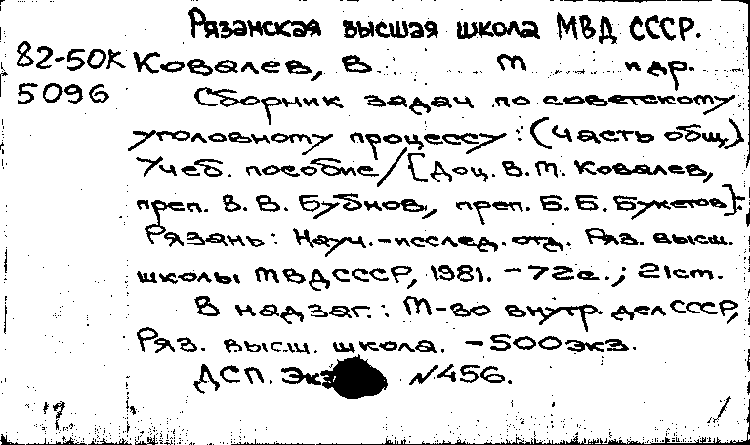 Рязанская высшая школа МВД СССР.
82-50К Ковалев, В. М и др.
5096
Сборник задач по советскому
уголовному процессу: (Часть общ.)
Учеб. пособие/[Доц. В.М. Ковалев,
преп. В.В. Бубнов, преп. Б.Б. Букетов]:
Рязань: Науч.-исслед. отд. Ряз. высш.
школы МВД СССР, 1981. -72с.; 21ст.
В надзаг.: М-во внутр. дел СССР,
Ряз. высш. школа. -500экз.
ДСП. Экз N456.